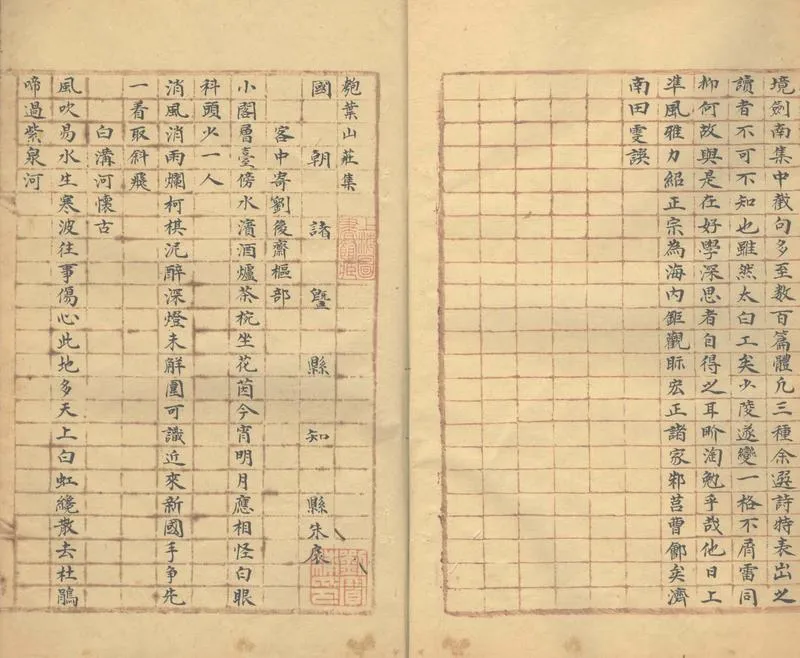 境劍南集中截句多至數百篇體凡三種余選詩特表出之
讀者不可不知也雖然太白工矣少陵遂變一格不屑雷同
抑何故與是在好學深思者自得之耳盼淘勉乎哉他日上
準風雅力紹正宗為海內鉅觀眎宏正諸家邾莒曹鄶矣濟
南田雯譔
匏葉山莊集
國朝諸暨縣知縣朱扆
客中寄劉後齋樞部
小閣層臺傍水濱酒爐茶椀坐花茵今宵明月應相怪白眼
科頭少一人
消風消雨爛柯棋泥醉深燈未解圍可識近來新國手爭先
一看取斜飛
白溝河懷古
風吹易水生寒波往事傷心此地多天上白虹纔散去杜鵑
啼過紫泉河